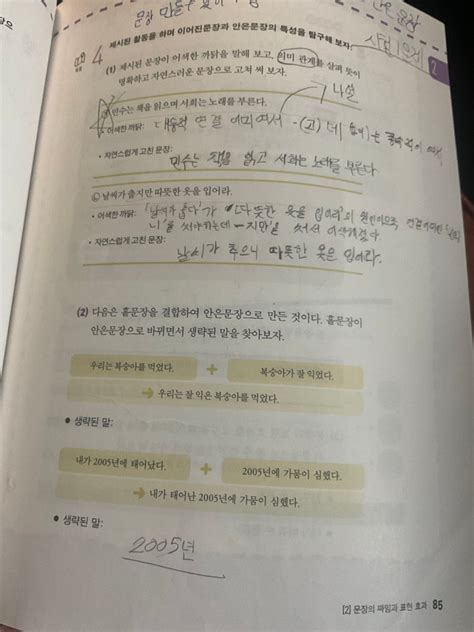 문장
시험 1문제
2
4 제시된 활동을 하며 이어진문장과 안은문장의 특성을 탐구해 보자.
(1) 제시된 문장이 어색한 까닭을 말해 보고, 의미 관계를 살펴 뜻이
명확하고 자연스러운 문장으로 고쳐 써 보자.
㉠ 민수는 책을 읽으며 서희는 노래를 부른다.
• 어색한 까닭: 대등적 연결 어미여서 -(고)
• 자연스럽게 고친 문장:
민수는 책을 읽고 서희는 노래를 부른다.
㉡ 날씨가 춥지만 따뜻한 옷을 입어라.
• 어색한 까닭: '날씨가 춥다'가 '따뜻한 옷을 입어라'의 원인이므로
'니'를 써야하는데 '-지만'을 써서 어색하다.
• 자연스럽게 고친 문장:
날씨가 추우니 따뜻한 옷을 입어라.
(2) 다음은 홑문장을 결합하여 안은문장으로 만든 것이다. 홑문장이
안은문장으로 바뀌면서 생략된 말을 찾아보자.
우리는 복숭아를 먹었다. + 복숭아가 잘 익었다.
→ 우리는 잘 익은 복숭아를 먹었다.
• 생략된 말:
내가 2005년에 태어났다. + 2005년에 가뭄이 심했다.
→ 내가 태어난 2005년에 가뭄이 심했다.
• 생략된 말:
2005년
[2] 문장의 짜임과 표현 효과 85